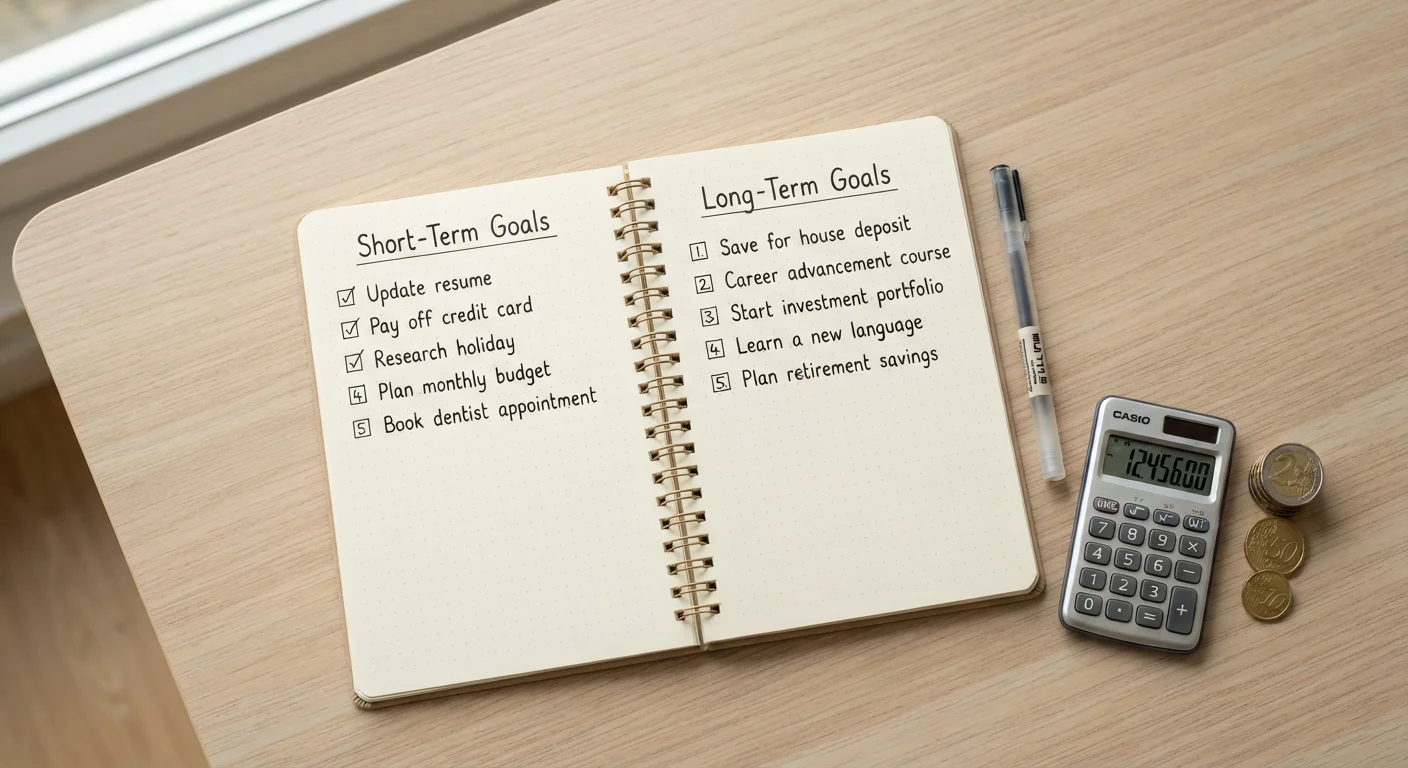 Short-Term Goals
☑ Update resume
☑ Pay off credit card
☑ Research holiday
4 Plan monthly budget
5 Book dentist appointment
Long-Term Goals
1. Save for house deposit
2 Career advancement course
3 Start investment portfolio
4 Learn a new language
5. Plan retirement savings
CASIO
12456.00
7 8 9 ×
4 5 6 −
1 2 3
0 · = +
2
50
10